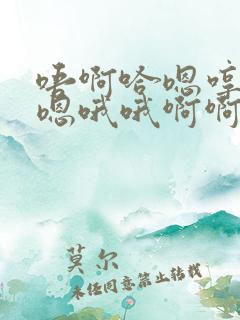 唔啊哈嗯哼
嗯哦哦啊啊
莫尔
未经同意禁止转载